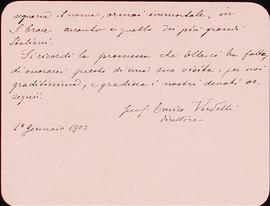 segnare il nome, ormai immortale, in
S. Croce accanto a quello dei più grandi
Italiani.
Si ricordi la promessa che Ella ci ha fatto,
di onorarci presto di una sua visita, per noi
graditissima, e gradisca i nostri devoti os-
sequii.
prof. Enrico Verdelli
direttore
1º Gennaio 1902